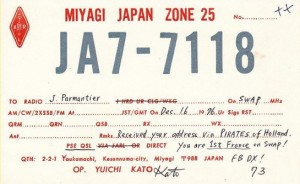 MIYAGI JAPAN ZONE 25
No. xx
JA7-7118
TO RADIO J. Parmentier I HRD UR CLG/WKG On SWAP MHz
AM/CW/2XSSB/FM At JST/GMT On Dec. 16 1976. Ur
QRM QRN QSB Rx Ant
Ant Rmks Received your address via PIRATES of Holland.
PSE QSL VIA JARL OR DIRECT You are 1st France on SWAP!
QTH: 2-2-1 Youkamachi, Kesennuma-city, Miyagi 〒988 JAPAN FB DX!
OP. YUICHI KATO Kato 73